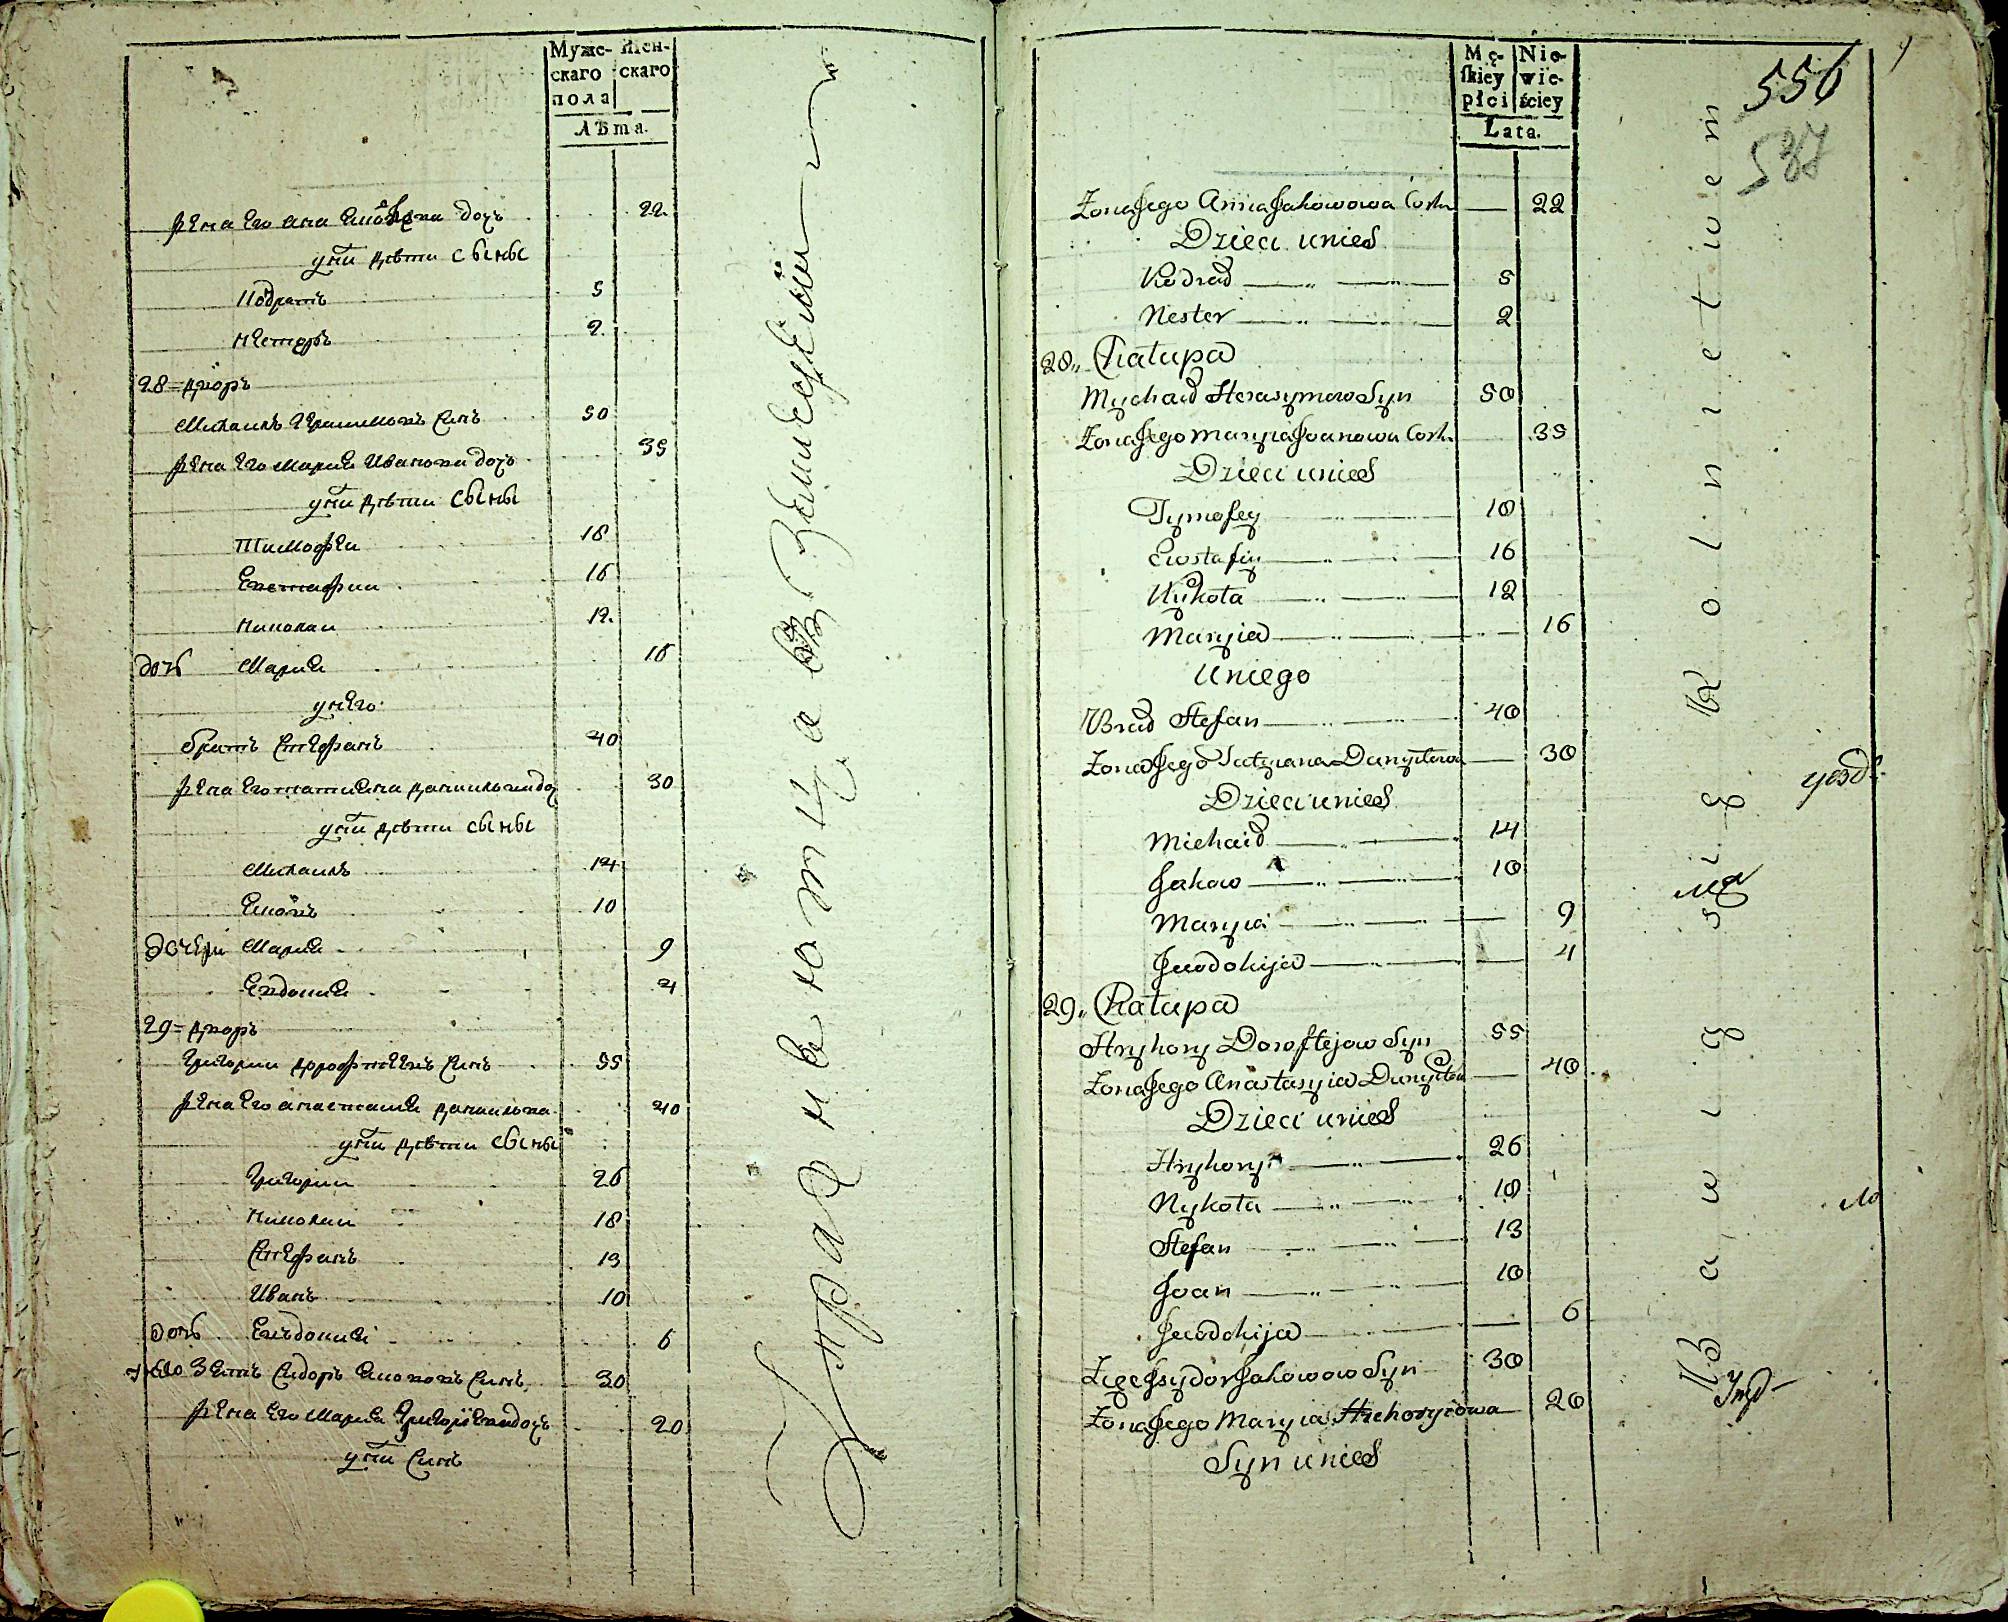 Муже-
скаго
пола
Жен-
скаго
Лѣта.
жена его ана дочь 22
у них дѣти сыны
Кодратъ 5
Нестеръ 2
28 = дворъ
Михаилъ Герасимовъ синъ 50
жена его Мария Иванова дочь 35
у них дѣти сыны
Тимофеи 18
Евстафии 16
Николаи 12
дочь Мария 16
у него
братъ Стефанъ 40
жена его Татиена Данилова до 30
у них дѣти сыны
Михаилъ 14
Яковъ 10
дочери Мария 9
Евдокия 4
29 = дворъ
Григории Дорофтеевъ синъ 55
жена его Анастасия Данилова 40
у них дѣти сыны
Григории 26
Николаи 18
Стефанъ 13
Иванъ 10
дочь Евъдокия 6
зять Сидоръ Якововъ синъ 30
жена его Мария Григориева дочь 20
у них синъ
Mę-
skiey
płci
Nie-
wie-
ściey
Lata.
556
537
Żona Jego Anna Jakowowa Cork. 22
Dzieci u nich
Kodrad 5
Nester 2
28,, Chałupa
Mychaił Herasymow Syn 50
Żona Jego Maryia Joanowa Cork. 35
Dzieci u nich
Tymofey 18
Ewstafiy 16
Nykoła 12
Maryia 16
U niego
Brad Stefan 40
Żona Jego Tatyana Danyłowa 30
Dzieci u nich
Michaił 14
Jakow 10
Maryia 9
Jewdokija 4
29,, Chałupa
Hryhory Doroftejow Syn 55
Żona Jego Anastasyia Danyłow 40
Dzieci u nich
Hryhory 26
Nykoła 18
Stefan 13
Joan 10
Jewdokija 6
Zięć Jsydor Jakowow Syn 30
Żona Jego Maryia Hrehoryiowa 20
Syn u nich
Упражняютца въ Земледелии
Bawią się Rolnictwem
уезд.